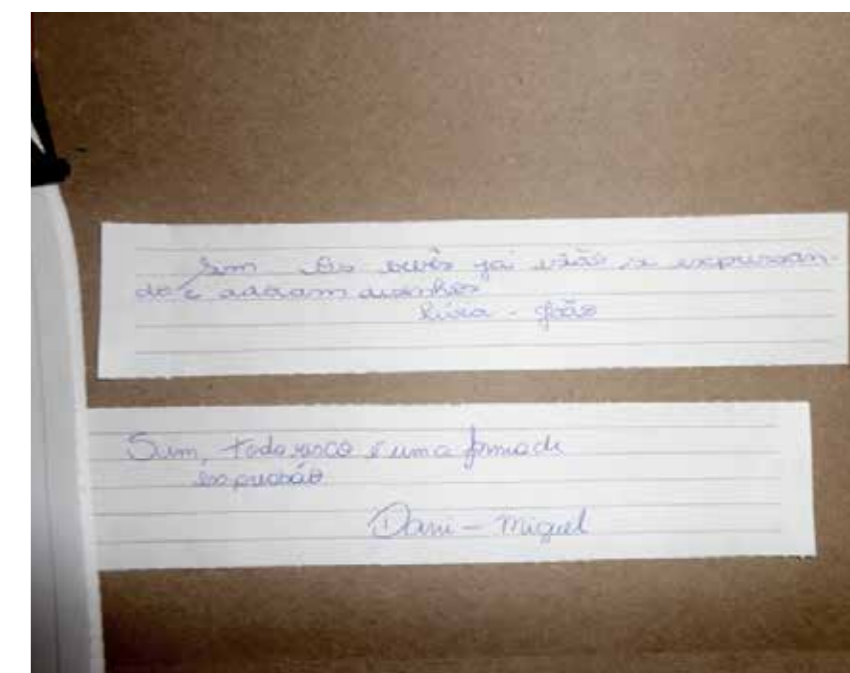 Sim Os bebês já estão se expressan-
do e adoram desenhos
Lívia - João
Sim, todo risco é uma forma de
expressão
Dani - Miguel